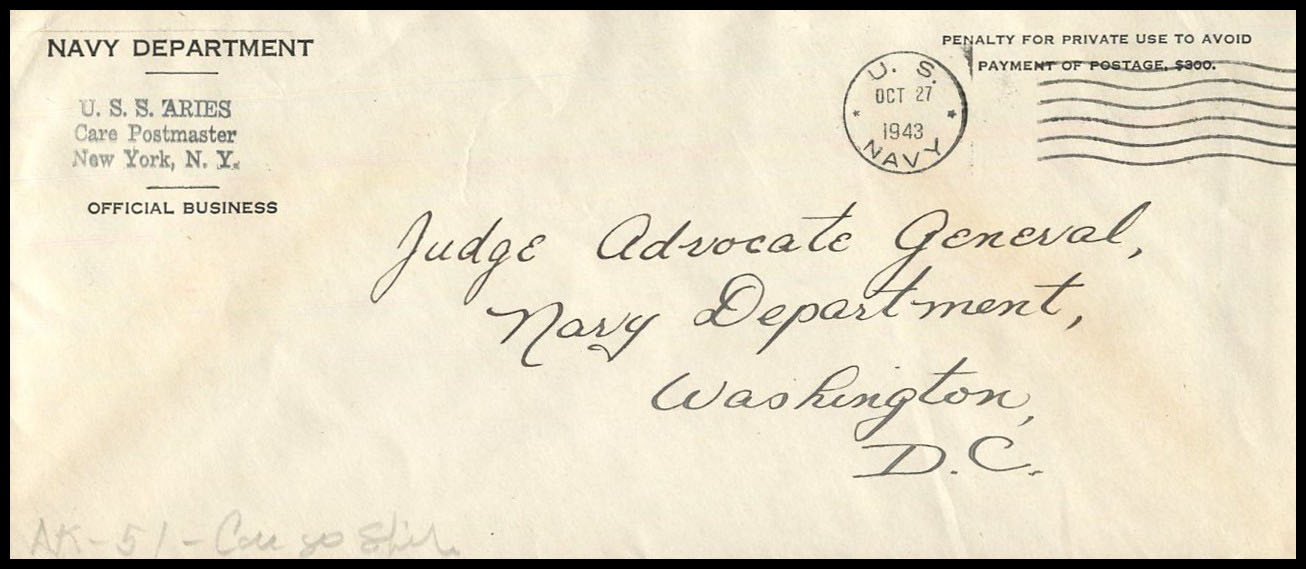 NAVY DEPARTMENT
U. S. S. ARIES
Care Postmaster
New York, N. Y.
OFFICIAL BUSINESS
PENALTY FOR PRIVATE USE TO AVOID
PAYMENT OF POSTAGE, $300.
U. S.
OCT 27
1943
NAVY
Judge Advocate General,
Navy Department,
Washington,
D.C.
AK-51-Cargo Ship.